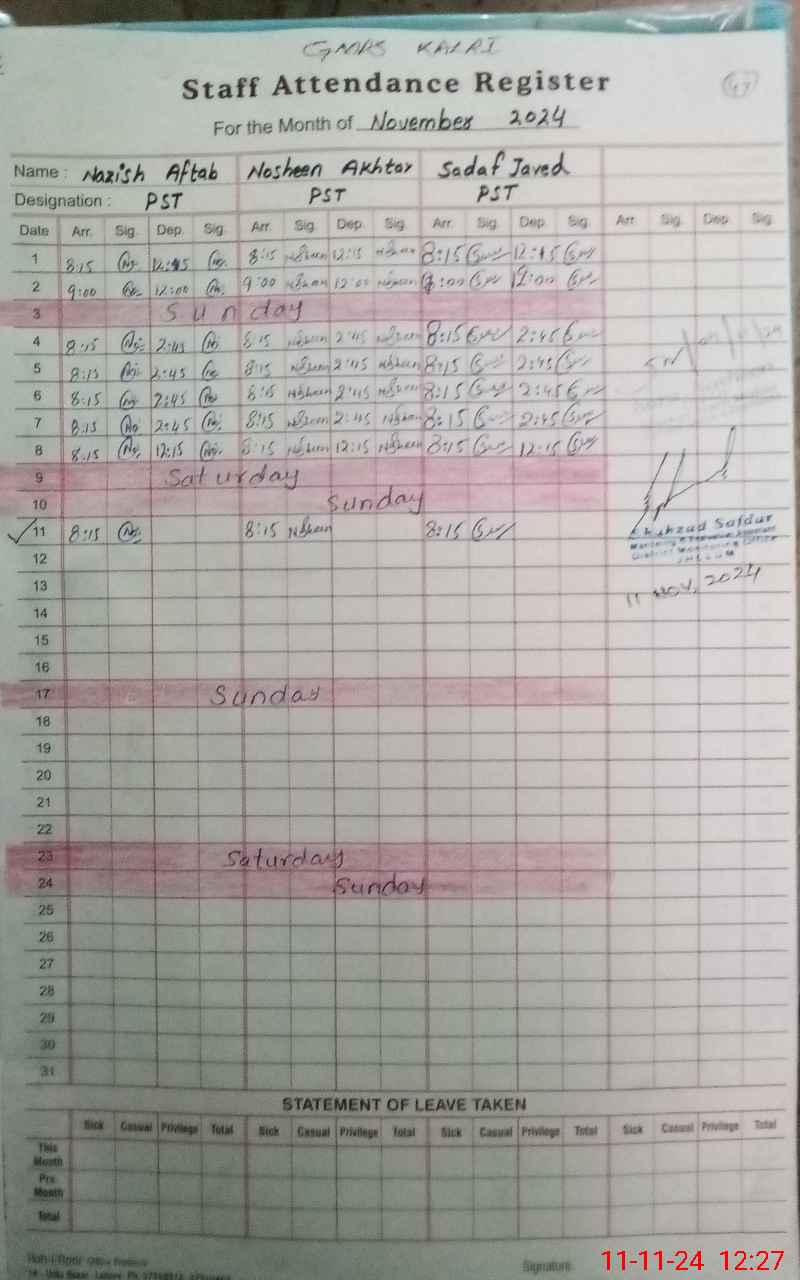 GMPS KALRI
Staff Attendance Register
47
For the Month of November 2024
Name : Nazish Aftab Nosheen Akhtar Sadaf Javed
Designation : PST PST PST
Date Arr. Sig. Dep. Sig. Arr. Sig. Dep. Sig. Arr. Sig. Dep. Sig. Arr. Sig. Dep. Sig.
1 8:15 12:45 8:15 Nosheen 12:15 Nosheen 8:15 12:45
2 9:00 12:00 9:00 Nosheen 12:00 Nosheen 9:00 12:00
3 Sunday
4 8:15 2:45 8:15 Nosheen 2:45 Nosheen 8:15 2:45
5 8:15 2:45 8:15 Nosheen 2:45 Nosheen 8:15 2:45
6 8:15 2:45 8:15 Nosheen 2:45 Nosheen 8:15 2:45
7 8:15 2:45 8:15 Nosheen 2:45 Nosheen 8:15 2:45
8 8:15 12:15 8:15 Nosheen 12:15 Nosheen 8:15 12:15
9 Saturday
10 Sunday
11 8:15 8:15 Nosheen 8:15
Shahzad Safdar
Monitoring & Evaluation Assistant
District Monitoring Office
JHELUM
11 NOV, 2024
12
13
14
15
16
17 Sunday
18
19
20
21
22
23 Saturday
24 Sunday
25
26
27
28
29
30
31
STATEMENT OF LEAVE TAKEN
Sick Casual Privilege Total Sick Casual Privilege Total Sick Casual Privilege Total Sick Casual Privilege Total
This Month
Pre. Month
Total
Koh-i-Noor Office Products
14 - Urdu Bazar, Lahore. Ph:
Signature
11-11-24 12:27